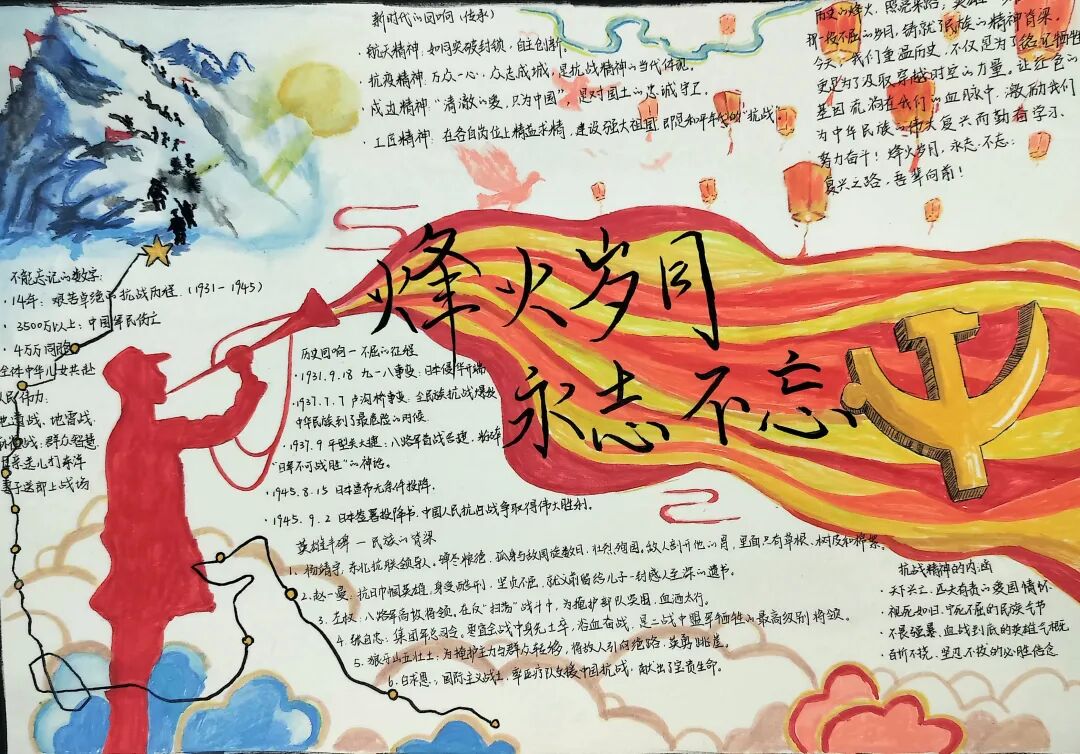 新时代的回响（传承）
· 航天精神：如同突破封锁，自主创新。
· 抗疫精神：万众一心，众志成城，是抗战精神的当代体现。
· 戍边精神："清澈的爱，只为中国"，是对国土的忠诚守卫。
· 工匠精神：在各自岗位上精益求精，建设强大祖国，即是和平年代的"抗战"。
历史的烽火，照亮来路；英雄
不屈的岁月，铸就民族的精神脊梁。
今天，我们重温历史，不仅是为了铭记牺牲
更是为了汲取穿越时空的力量。让红色的
基因流淌在我们的血脉中，激励我们
为中华民族的伟大复兴而勤奋学习、
努力奋斗！烽火岁月，永志不忘；
复兴之路，吾辈向前！
烽火岁月
永志不忘
不能忘记的数字：
· 14年：艰苦卓绝的抗战历程（1931-1945）
· 3500万以上：中国军民伤亡
· 4万万同胞
全体中华儿女共赴
人民伟力：
地道战、地雷战、
战：群众智慧
母亲送儿打东洋
妻子送郎上战场
历史回响—不屈的征程
· 1931.9.18 九一八事变：日本侵华开端
· 1937.7.7 卢沟桥事变：全民族抗战爆发
中华民族到了最危险的时候
· 1937.9 平型关大捷：八路军首战告捷，粉碎
"日军不可战胜"的神话。
· 1945.8.15 日本宣布无条件投降。
· 1945.9.2 日本签署投降书，中国人民抗日战争取得伟大胜利。
英雄丰碑—民族的脊梁
1. 杨靖宇：东北抗联领导人。弹尽粮绝，孤身与敌周旋数日，壮烈殉国。敌人剖开他的胃，里面只有草根、树皮和棉絮。
2. 赵一曼：抗日巾帼英雄，身受酷刑，坚贞不屈，就义前留给儿子一封感人至深的遗书。
3. 左权：八路军高级将领。在反"扫荡"战斗中，为掩护部队突围，血洒太行。
4. 张自忠：集团军总司令。枣宜会战中身先士卒，浴血奋战，是二战中盟军牺牲的最高级别将领。
5. 狼牙山五壮士：为掩护主力与群众转移，将敌人引向绝路，英勇跳崖。
6. 白求恩：国际主义战士，率医疗队支援中国抗战，献出了宝贵生命。
抗战精神的内涵
· 天下兴亡、匹夫有责的爱国情怀
· 视死如归、宁死不屈的民族气节
· 不畏强暴、血战到底的英雄气概
· 百折不挠、坚忍不拔的必胜信念